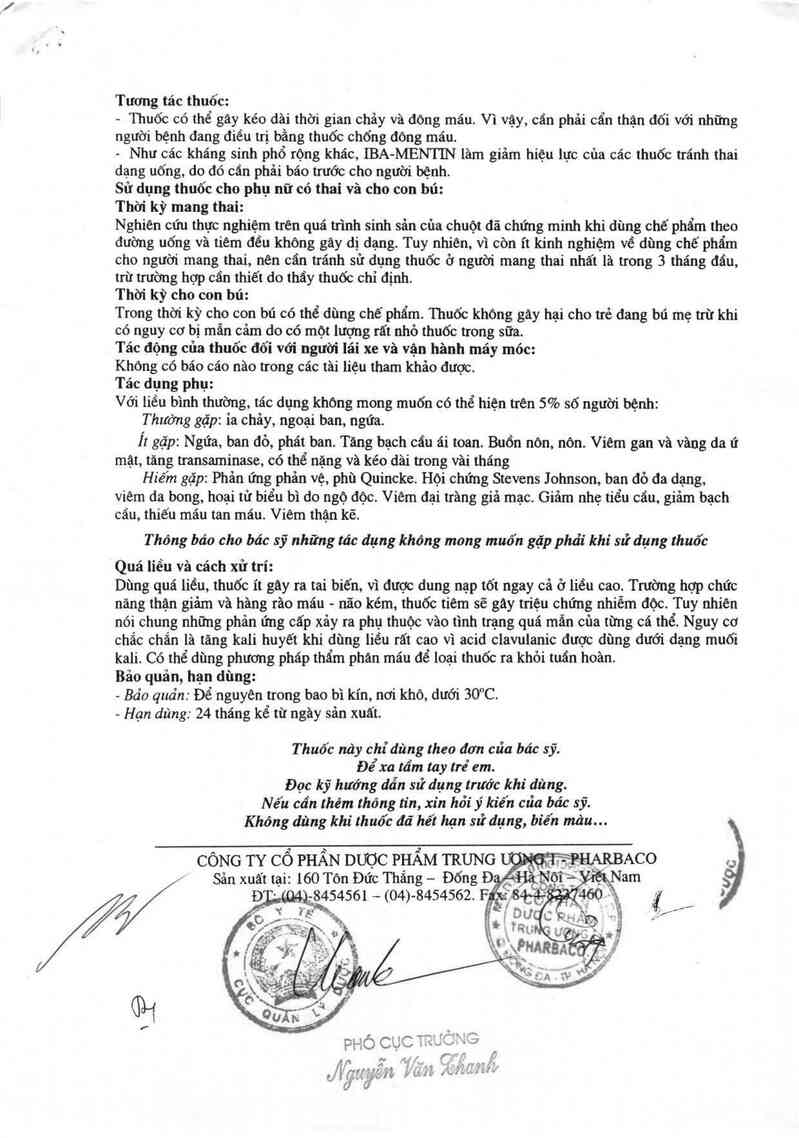 Tương tác thuốc:
- Thuốc có thể gây kéo dài thời gian chảy và đông máu. Vì vậy, cần phải cẩn thận đối với những
người bệnh đang điều trị bằng thuốc chống đông máu.
- Như các kháng sinh phổ rộng khác, IBA-MENTIN làm giảm hiệu lực của các thuốc tránh thai
dạng uống, do đó cần phải báo trước cho người bệnh.
Sử dụng thuốc cho phụ nữ có thai và cho con bú:
Thời kỳ mang thai:
Nghiên cứu thực nghiệm trên quá trình sinh sản của chuột đã chứng minh khi dùng chế phẩm theo
đường uống và tiêm đều không gây dị dạng. Tuy nhiên, vì còn ít kinh nghiệm về dùng chế phẩm
cho người mang thai, nên cần tránh sử dụng thuốc ở người mang thai nhất là trong 3 tháng đầu,
trừ trường hợp cần thiết do thầy thuốc chỉ định.
Thời kỳ cho con bú:
Trong thời kỳ cho con bú có thể dùng chế phẩm. Thuốc không gây hại cho trẻ đang bú mẹ trừ khi
có nguy cơ bị mẫn cảm do có một lượng rất nhỏ thuốc trong sữa.
Tác động của thuốc đối với người lái xe và vận hành máy móc:
Không có báo cáo nào trong các tài liệu tham khảo được.
Tác dụng phụ:
Với liều bình thường, tác dụng không mong muốn có thể hiện trên 5% số người bệnh:
Thường gặp: ỉa chảy, ngoại ban, ngứa.
Ít gặp: Ngứa, ban đỏ, phát ban. Tăng bạch cầu ái toan. Buồn nôn, nôn. Viêm gan và vàng da ứ
mật, tăng transaminase, có thể nặng và kéo dài trong vài tháng
Hiếm gặp: Phản ứng phản vệ, phù Quincke. Hội chứng Stevens Johnson, ban đỏ đa dạng,
viêm da bong, hoại tử biểu bì do ngộ độc. Viêm đại tràng giả mạc. Giảm nhẹ tiểu cầu, giảm bạch
cầu, thiếu máu tan máu. Viêm thận kẽ.
Thông báo cho bác sỹ những tác dụng không mong muốn gặp phải khi sử dụng thuốc
Quá liều và cách xử trí:
Dùng quá liều, thuốc ít gây ra tai biến, vì được dung nạp tốt ngay cả ở liều cao. Trường hợp chức
năng thận giảm và hàng rào máu - não kém, thuốc tiêm sẽ gây triệu chứng nhiễm độc. Tuy nhiên
nói chung những phản ứng cấp xảy ra phụ thuộc vào tình trạng quá mẫn của từng cá thể. Nguy cơ
chắc chắn là tăng kali huyết khi dùng liều rất cao vì acid clavulanic được dùng dưới dạng muối
kali. Có thể dùng phương pháp thẩm phân máu để loại thuốc ra khỏi tuần hoàn.
Bảo quản, hạn dùng:
- Bảo quản: Để nguyên trong bao bì kín, nơi khô, dưới 30°C.
- Hạn dùng: 24 tháng kể từ ngày sản xuất.
Thuốc này chỉ dùng theo đơn của bác sỹ.
Để xa tầm tay trẻ em.
Đọc kỹ hướng dẫn sử dụng trước khi dùng.
Nếu cần thêm thông tin, xin hỏi ý kiến của bác sỹ.
Không dùng khi thuốc đã hết hạn sử dụng, biến màu...
CÔNG TY CỔ PHẦN DƯỢC PHẨM TRUNG ƯƠNG I - PHARBACO
Sản xuất tại: 160 Tôn Đức Thắng – Đống Đa – Hà Nội – Việt Nam
ĐT: (04)-8454561 – (04)-8454562. Fax: 84-4-8237460
BỘ Y TẾ
CỤC QUẢN LÝ DƯỢC
CÔNG TY
CỔ PHẦN
DƯỢC PHẨM
TRUNG ƯƠNG
PHARBACO
ĐỐNG ĐA - TP HÀ NỘI
DƯỢC
PHÓ CỤC TRƯỞNG
Nguyễn Văn Thanh